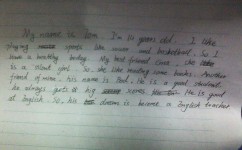 My name is Tom. I'm 14 years old. I like
playing sports like soccer and basketball. So I
have a healthy body. My best friend Gina, she
is a quiet girl. She like reading some books. Another
friend of mine, his name is Bob. He is a good student.
he always gets a big scores. He is good
at English. So, his dream is become a English teacher